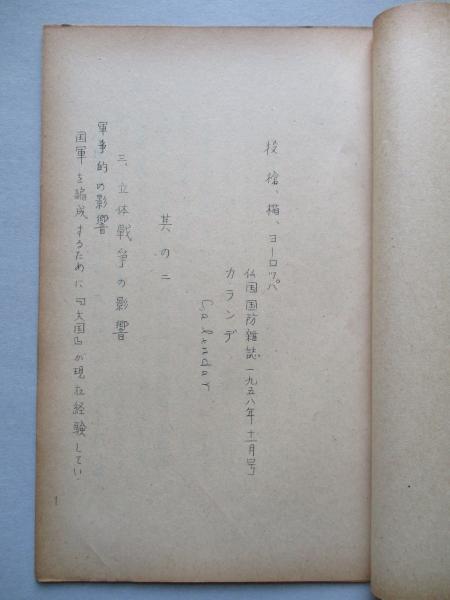 投槍、楯、ヨーロッパ
仏国国防雑誌 一九五八年十一月号
カランデ
Calendar
其の二
三、立体戦争の影響
軍事的の影響
国軍を編成するために『大国』が現在経験してい
1